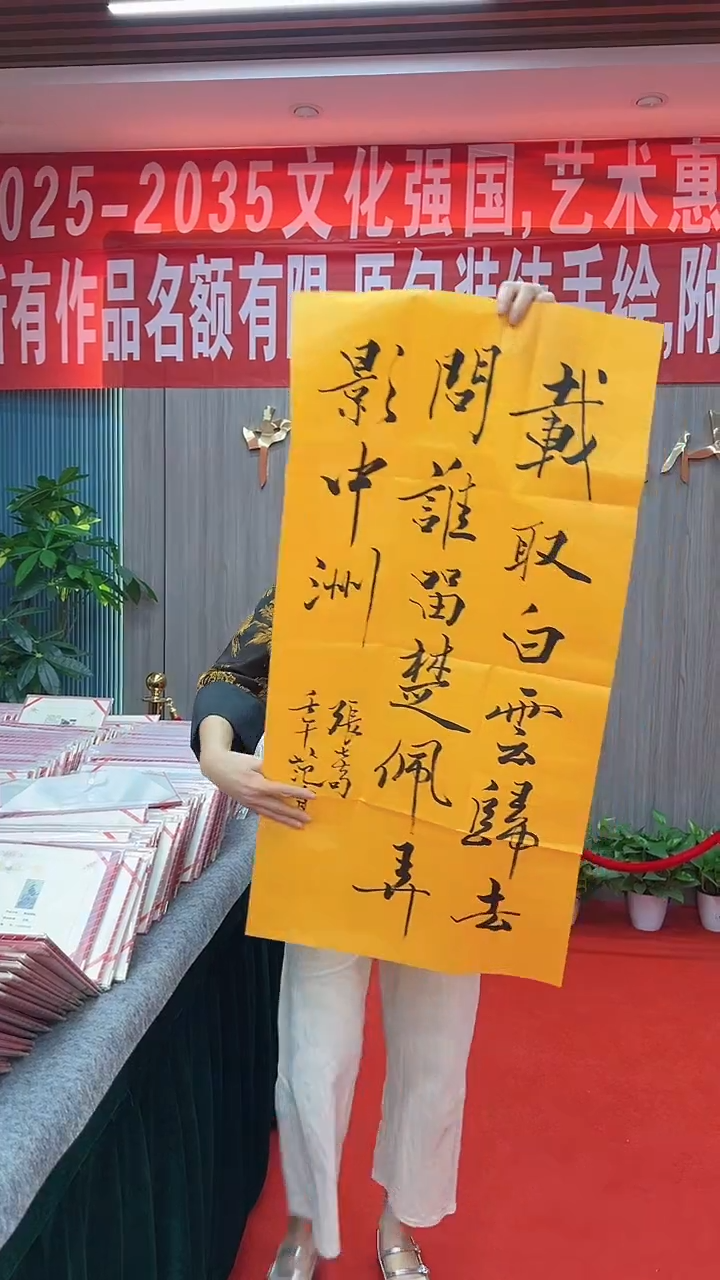 025-2035文化强国,艺术惠
有作品名额有限 原包装纯手绘,附
載取白雲歸去
問誰留楚佩弄
影中洲
張
壬午 范